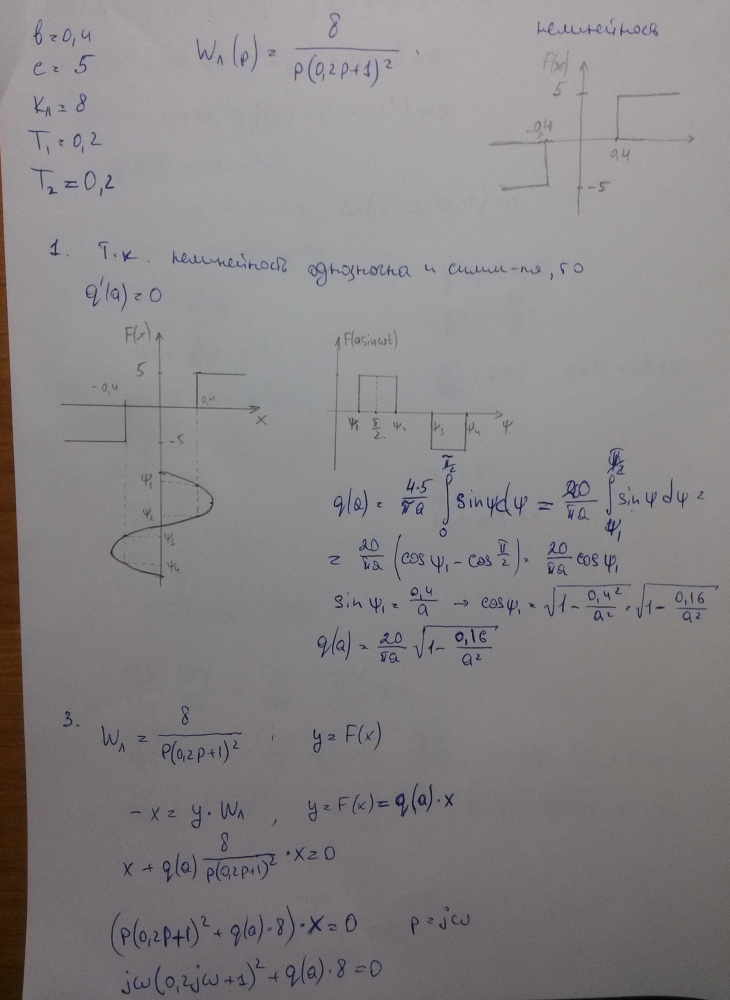 b = 0,4
c = 5
Kл = 8
T₁ = 0,2
T₂ = 0,2
Wл(p) = 8 / (p(0,2p+1)²) ;
нелинейность
F(x)
5
-0,4
0,4
-5
1. Т.к. нелинейность однозначна и симм-ая, то
q'(a) = 0
F(x)
5
-0,4
0,4
x
-5
ψ₁
ψ₂
ψ₃
ψ₄
F(a sin ωt)
ψ₁ π/2 ψ₂ ψ₃ ψ₄ ψ
q(a) = 4·5/πa ∫₀^(π/2) sinψdψ = 20/πa ∫_(ψ₁)^(π/2) sinψdψ =
= 20/πa (cosψ₁ - cos π/2) = 20/πa cosψ₁
sinψ₁ = 0,4/a → cosψ₁ = √(1 - 0,4²/a²) = √(1 - 0,16/a²)
q(a) = 20/πa √(1 - 0,16/a²)
3. Wл = 8 / (p(0,2p+1)²) ; y = F(x)
-x = y·Wл , y = F(x) = q(a)·x
x + q(a) 8 / (p(0,2p+1)²) · x = 0
(p(0,2p+1)² + q(a)·8)·x = 0 p = jω
jω(0,2jω+1)² + q(a)·8 = 0